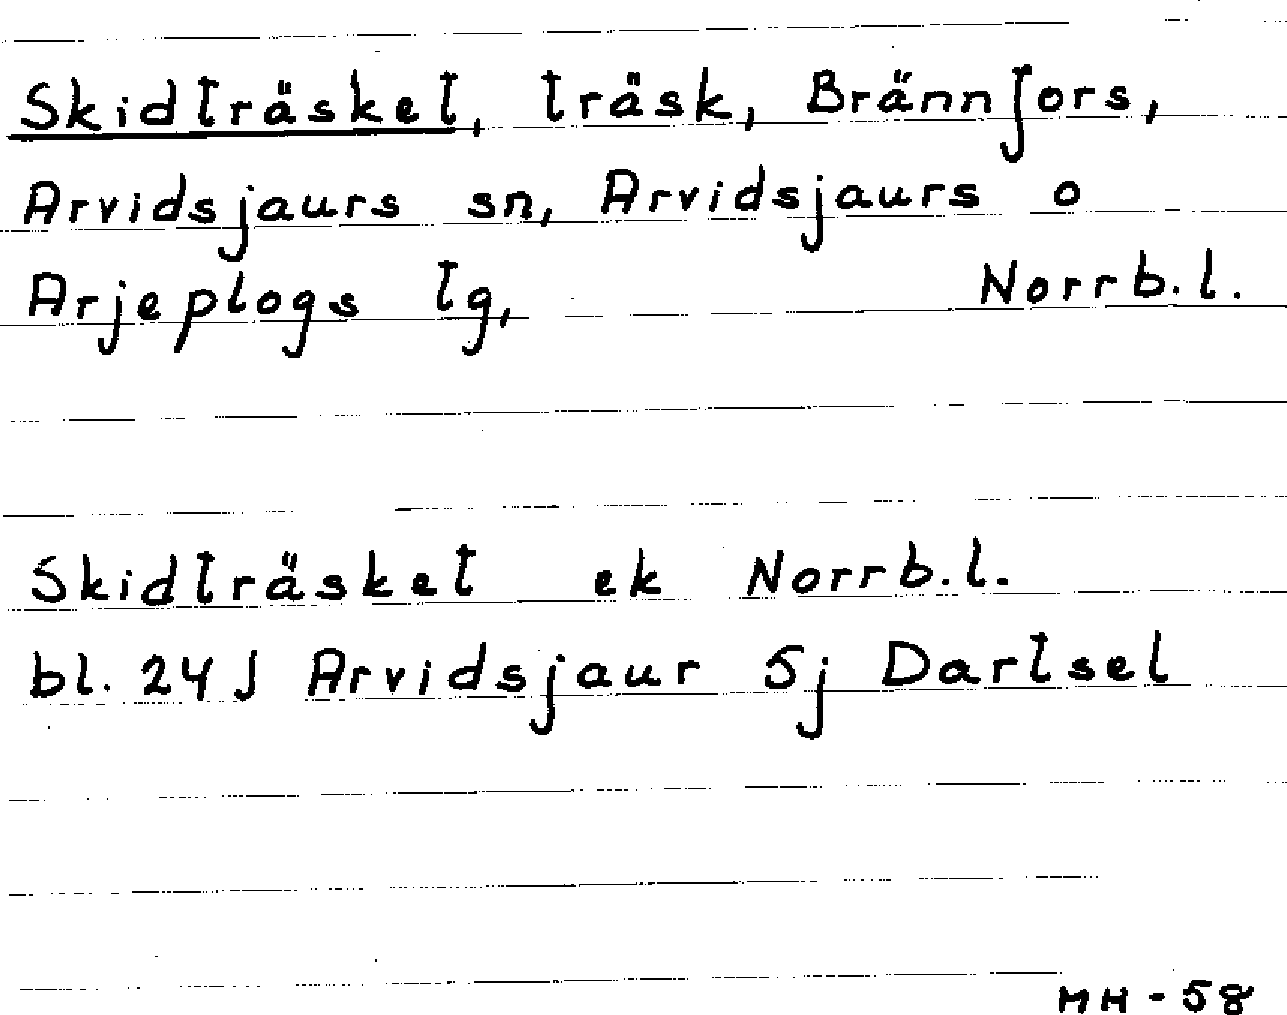 Skidträsket, träsk, Brännfors,
Arvidsjaurs sn, Arvidsjaurs o
Arjeplogs lg, Norrb.l.
Skidträsket ek Norrb.l.
bl. 24 J Arvidsjaur 5j Dartsel
MH - 58